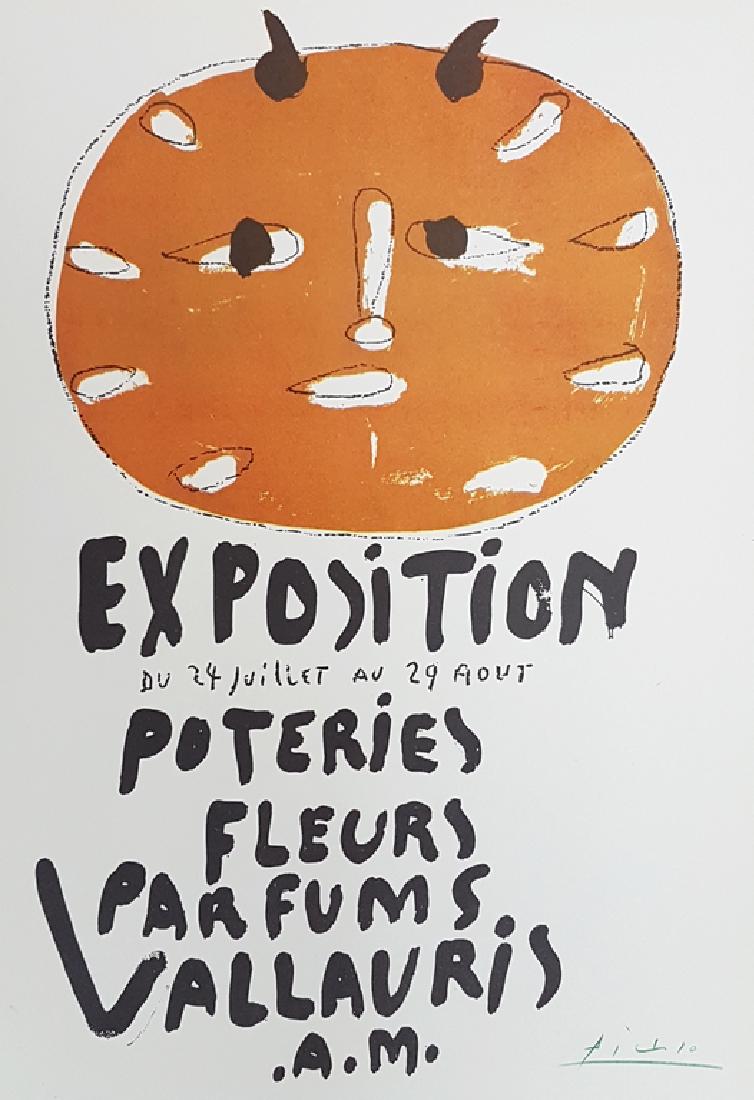 EXPOSITION
DU 24 JUILLET AU 29 AOUT
POTERIES
FLEURS
PARFUMS
VALLAURIS
.A.M.
Picasso